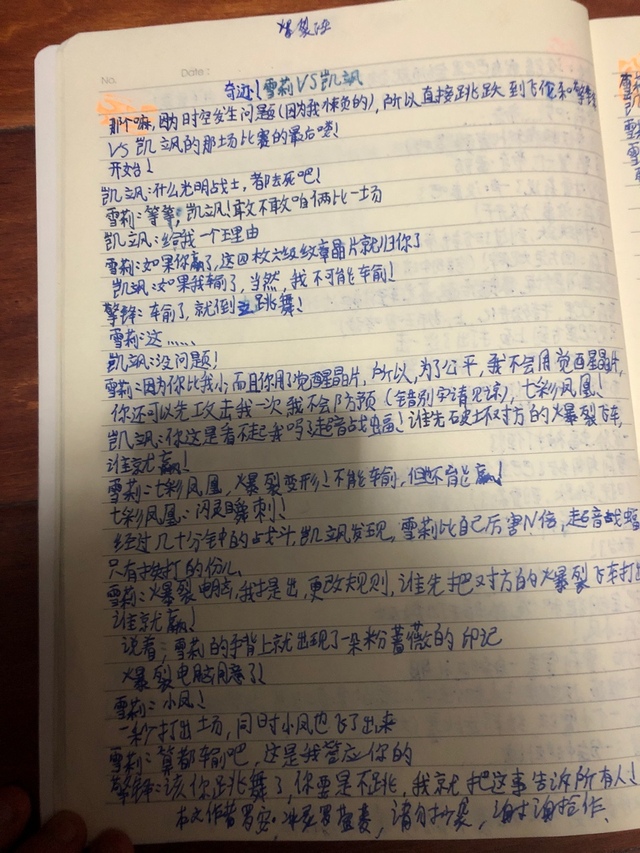 爆裂
No.
Date:
奇迹!雪莉VS凯飒
那个嘛,因为时空发生问题(因为我懒负的),所以直接跳跃到飞伦和擎锋
VS凯飒的那场比赛的最后喽!
开始!
凯飒:什么光明战士,都去死吧!
雪莉:等等,凯飒!敢不敢咱俩比一场
凯飒:给我一个理由
雪莉:如果你赢了,这四枚六级纹章晶片就归你了
凯飒:如果我输了,当然,我不可能输!
擎锋:输了,就倒立跳舞!
雪莉:这……
凯飒:没问题!
雪莉:因为你比我小而且你用了觉醒晶片,所以,为了公平,我不会用觉醒晶片,
你还可以先攻击我一次我不会防预(错别字请见谅),七彩凤凰!
凯飒:你这是看不起我吗?超音战蝠!谁先破坏对方的火爆裂飞车,
谁就赢!
雪莉:七彩凤凰,爆裂变形!不能输,但也不能赢!
七彩凤凰:闪灵瞬刺!
经过几十分钟的战斗,凯飒发现,雪莉比自己厉害N倍,超音战蝠
只有挨打的份儿
雪莉:爆裂电脑,我提出,更改规则,谁先把对方的火爆裂飞车打出
谁就赢!
说着,雪莉的手背上就出现了一朵粉蔷薇的印记
爆裂电脑同意了!
雪莉:小凤!
一秒打出场,同时小凤也飞了出来
雪莉:算都输吧,这是我答应你的
擎锋:该你跳舞了,你要是不跳,我就把这事告诉所有人!
本文作者罗安,请勿抄袭,谢谢合作.